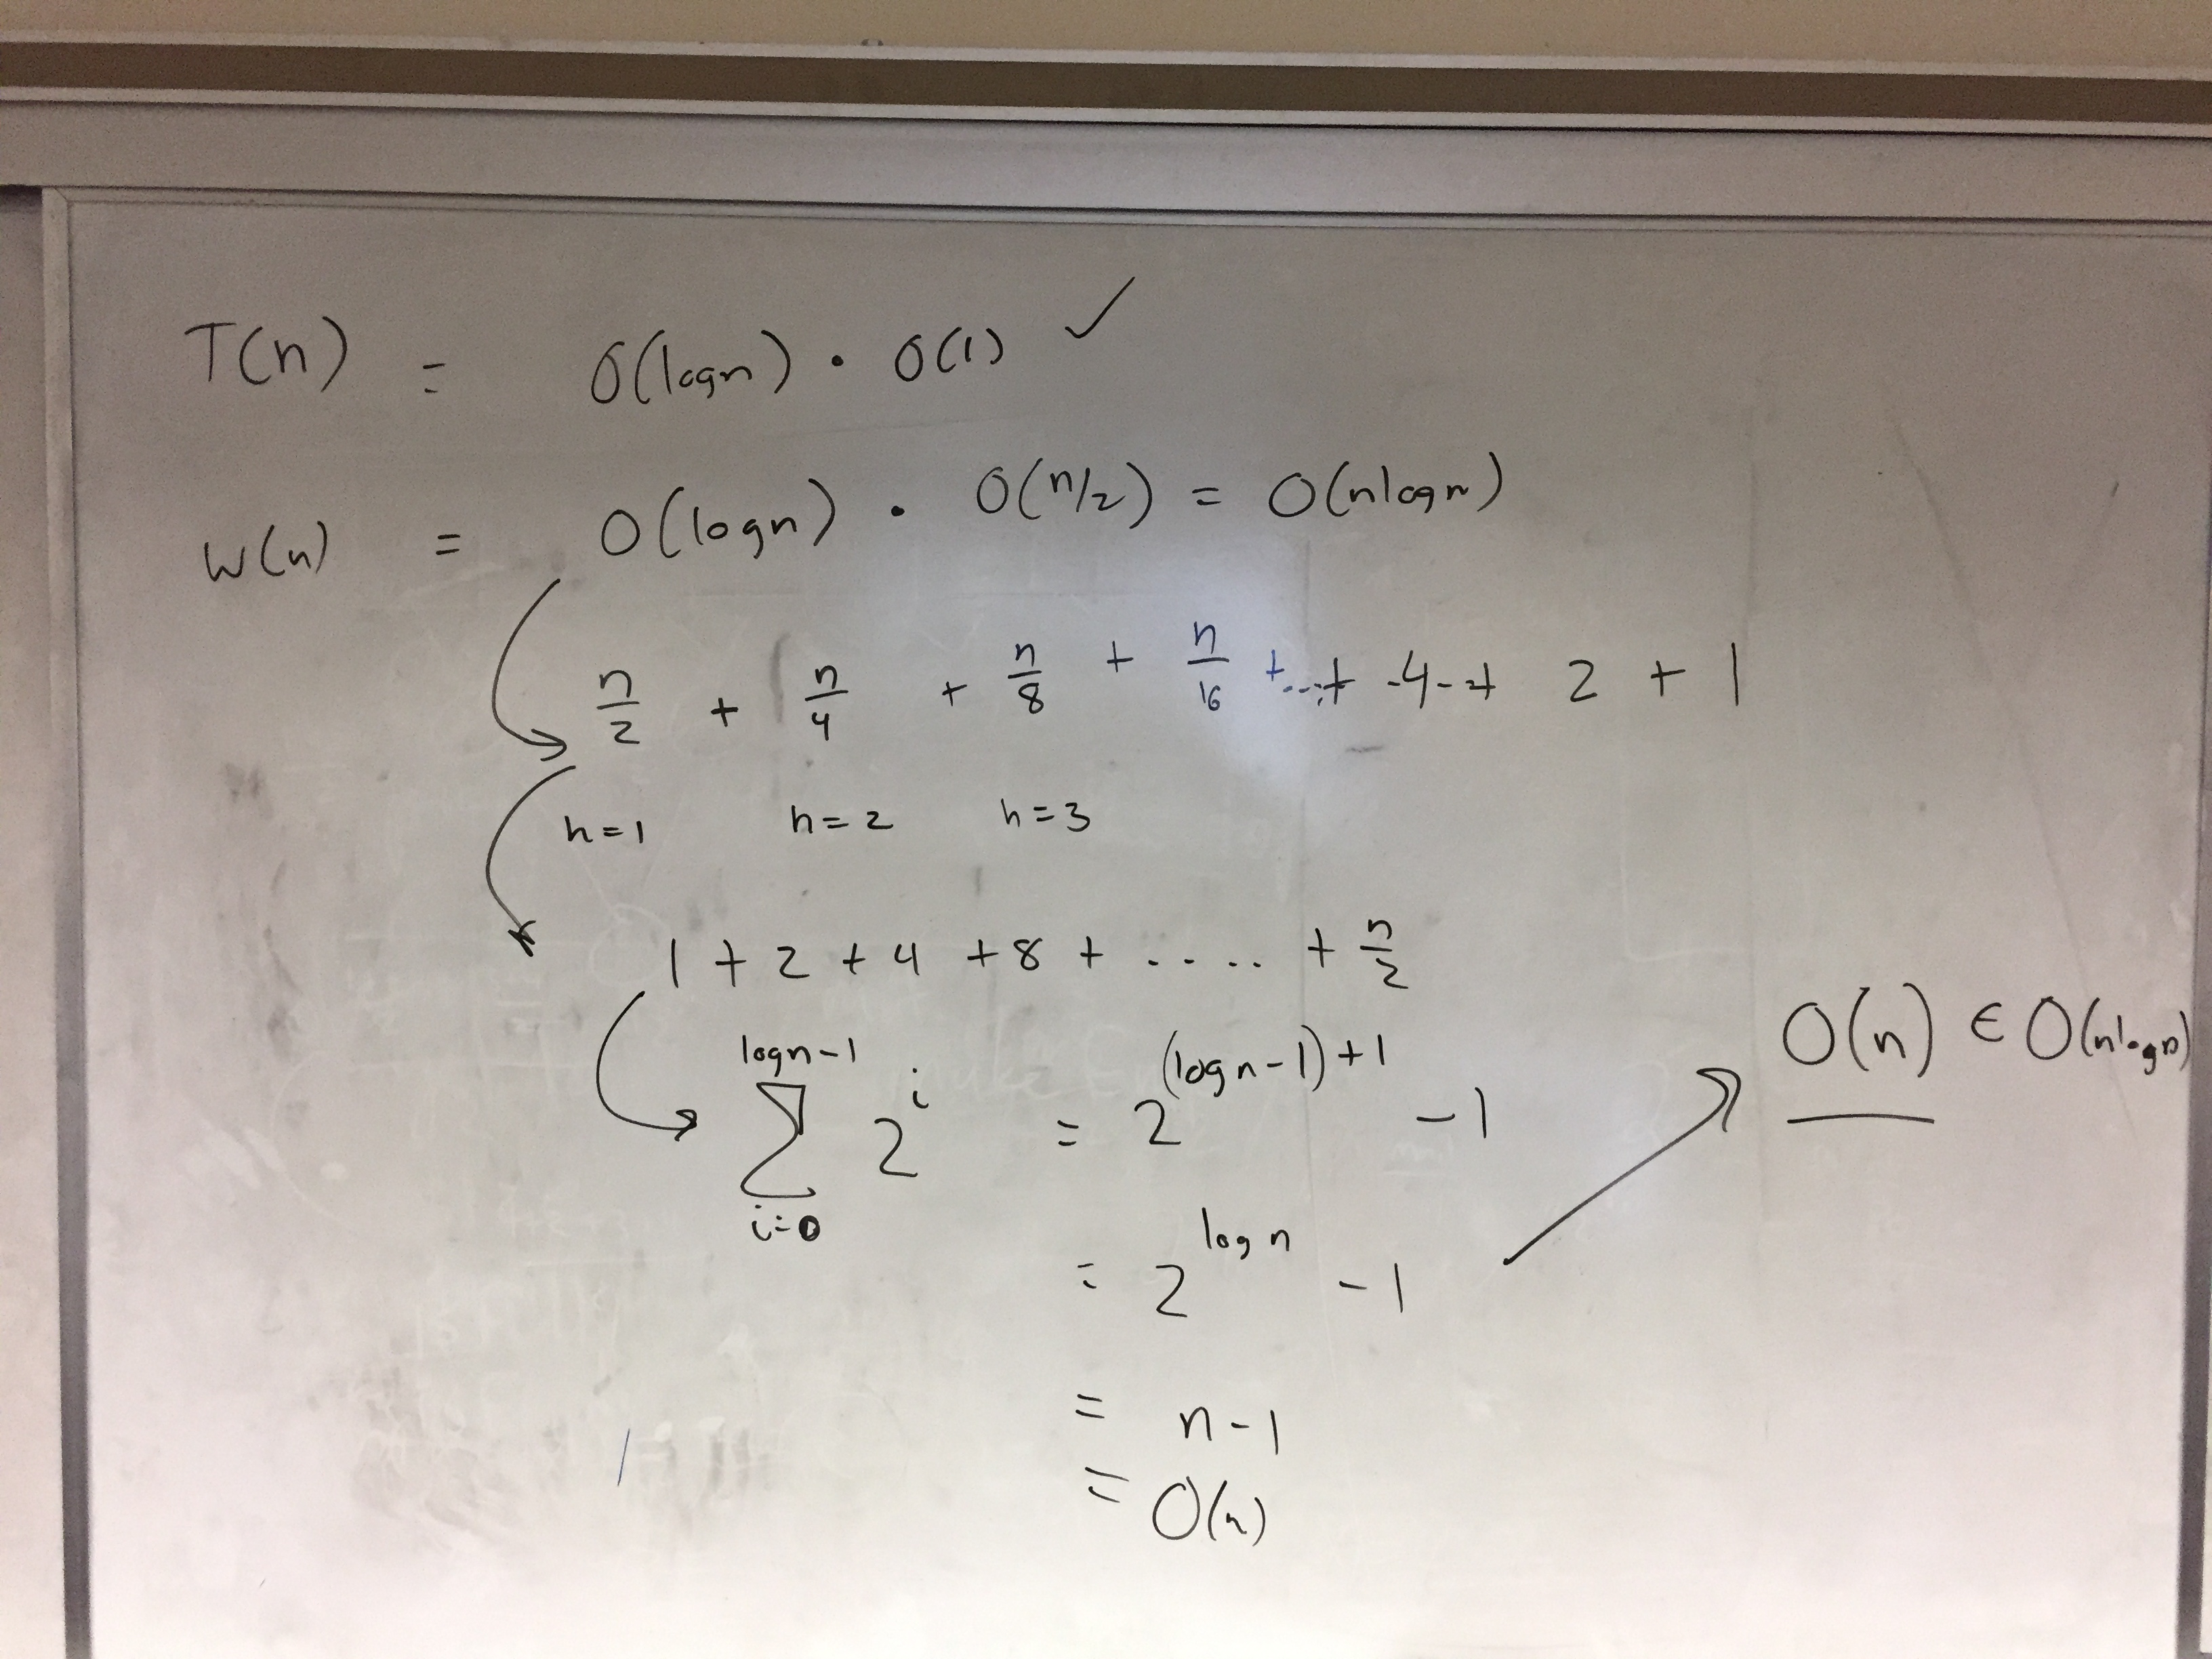 T(n) = O(logn) · O(1) ✓
W(n) = O(logn) · O(n/2) = O(nlogn)
n/2 + n/4 + n/8 + n/16 + ... + 4 + 2 + 1
h=1 h=2 h=3
1 + 2 + 4 + 8 + .... + n/2
∑_{i=0}^{logn-1} 2^i = 2^{(logn-1)+1} - 1
O(n) ∈ O(nlogn)
= 2^{logn} - 1
= n-1
= O(n)